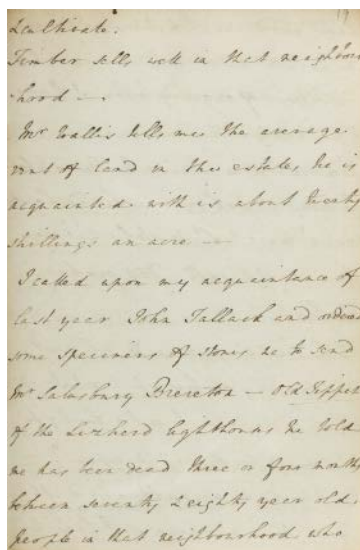 & cultivate.
Timber sells well in that neighbour
-hood —.
Mr Wallis tells me the average
rent of land in the estates he is
acquainted with is about twenty
shillings an acre —
I called upon my acquaintance of
last year John Tallack and ordered
some specimens of stones, as to send
Mr Salusbury Brereton — Old Tippet
of the Lizherd lighthouses he told
me has been dead three or four months
between seventy & eighty year old.
people in that neighbourhood who